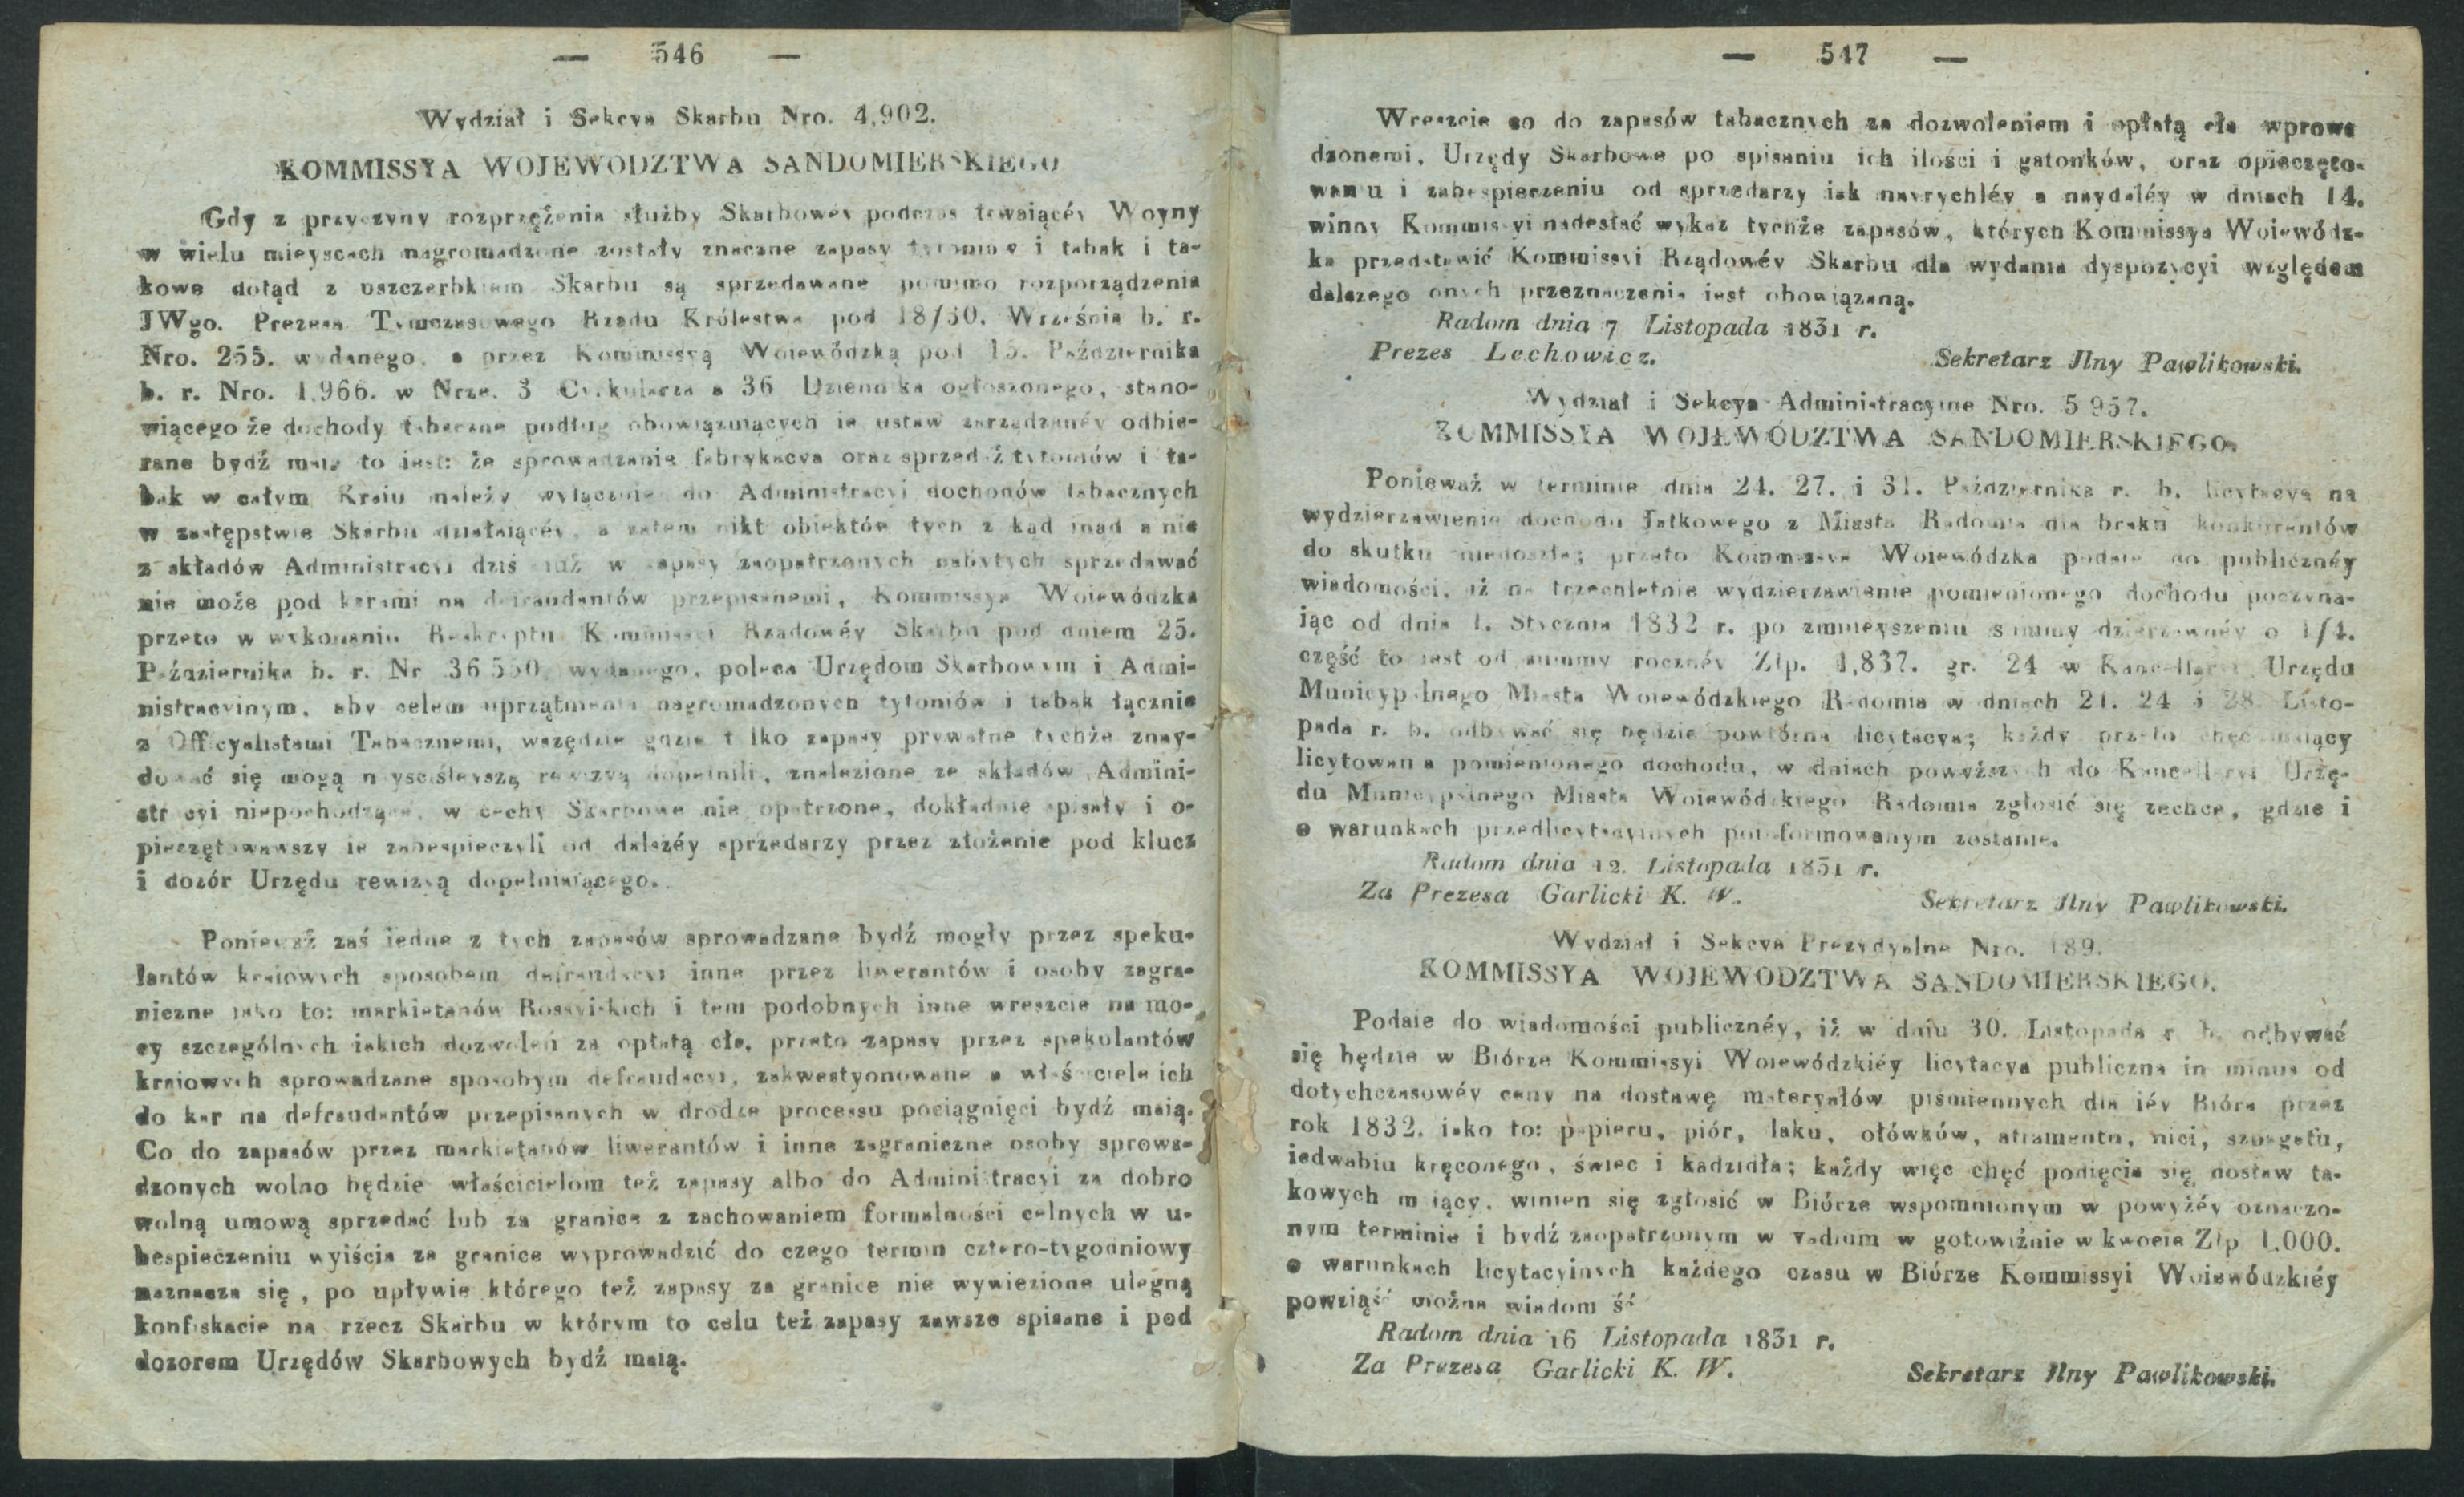 — 546 —
Wydział i Sekcya Skarbu Nro. 4,902.
KOMMISSYA WOJEWODZTWA SANDOMIERSKIEGO
Gdy z przyczyny rozprzężenia służby Skarbowéy podczas trwaiącéy Woyny
w wielu mieyscach nagromadzone zostały znaczne zapasy tytoniow i tabak i ta-
kowe dotąd z uszczerbkiem Skarbu są sprzedawane pomimo rozporządzenia
JWgo. Prezesa Tymczasowego Rządu Królestwa pod 18/30. Września b. r.
Nro. 255. wydanego, a przez Kommissyą Woiewódzką pod 15. Października
b. r. Nro. 1,966. w Nrze. 3 Cyrkularza a 36 Dziennika ogłoszonego, stano-
wiącego że dochody tabaczne podług obowiązuiących ie ustaw zarządzanéy odbie-
rane bydź maią to iest: że sprowadzanie fabrykacya oraz sprzedaż tytoniów i ta-
bak w całym Kraiu należy wyłącznie do Administracyi dochodów tabacznych
w zastępstwie Skarbu działaiącéy, a zatem nikt obiektów tych z kąd inąd a nie
z składów Administracyi dziś iuż w zapasy zaopatrzonych nabytych sprzedawać
nie może pod karami na defraudantów przepisanemi, Kommissya Woiewódzka
przeto w wykonaniu Reskryptu Kommissyi Rządowéy Skarbu pod dniem 25.
Października b. r. Nr 36 550 wydanego, poleca Urzędom Skarbowym i Admi-
nistracyinym, aby celem uprzątnienia nagromadzonych tytoniów i tabak łącznie
z Officyalistami Tabacznemi, wszędzie gdzie tylko zapasy prywatne tychże znay-
dować się mogą nayściśleyszą rewizyą dopełnili, znalezione ze składów Admini-
stracyi niepochodzące, w cechy Skarbowe nie opatrzone, dokładnie spisały i o-
pieczętowawszy ie zabespieczyli od dalszéy sprzedarzy przez złożenie pod klucz
i dozór Urzędu rewizyą dopełniaiącego.
Ponieważ zaś iedne z tych zapasów sprowadzane bydź mogły przez speku-
lantów kraiowych sposobem defraudacyi inne przez liwerantów i osoby zagra-
niczne iako to: markietanów Rossyiskich i tem podobnych inne wreszcie na mo-
cy szczególnych iakich dozwoleń za opłatą cła, przeto zapasy przez spekulantów
kraiowych sprowadzane sposobym defraudacyi, zakwestyonowane a właściciele ich
do kar na defraudantów przepisanych w drodze processu pociągnięci bydź maią.
Co do zapasów przez markietanów liwerantów i inne zagraniczne osoby sprowa-
dzonych wolno będzie właścicielom też zapasy albo do Administracyi za dobro
wolną umową sprzedać lub za granice z zachowaniem formalności celnych w u-
bespieczeniu wyiścia za granice wyprowadzić do czego termin cztero-tygodniowy
naznacza się, po upływie którego też zapasy za granice nie wywiezione ulegną
konfiskacie na rzecz Skarbu w którym to celu też zapasy zawsze spisane i pod
dozorem Urzędów Skarbowych bydź maią.
— 547 —
Wreszcie co do zapasów tabacznych za dozwoleniem i opłatą cła wprowa
dzonemi, Urzędy Skarbowe po spisaniu ich ilości i gatonków, oraz opieczęto-
waniu i zabespieczeniu od sprzedarzy iak nayrychléy a naydaléy w dniach 14.
winny Kommissyi nadesłać wykaz tychże zapasów, których Kommissya Woiewódz-
ka przedstawić Kommissyi Rządowéy Skarbu dla wydania dyspozycyi względem
dalszego onych przeznaczenia iest obowiązaną.
Radom dnia 7 Listopada 1831 r.
Prezes Lechowicz. Sekretarz Jlny Pawlikowski.
Wydział i Sekcya Administracyine Nro. 5 957.
KOMMISSYA WOJEWÓDZTWA SANDOMIERSKIEGO.
Ponieważ w terminie dnia 24. 27. i 31. Października r. b. licytacya na
wydzierzawienie dochodu Jatkowego z Miasta Radomia dla braku konkurentów
do skutku niedoszła; przeto Kommissya Woiewódzka podaie do publicznéy
wiadomości, iż na trzechletnie wydzierzawienie pomienionego dochodu poczyna-
iąc od dnia 1. Stycznia 1832 r. po zmnieyszeniu summy dzierzawnéy o 1/4.
część to iest od summy rocznéy Złp. 1,837. gr. 24 w Kancellaryi Urzędu
Municypalnego Miasta Woiewódzkiego Radomia w dniach 21. 24 i 28. Listo-
pada r. b. odbywać się będzie powtórna licytacya; każdy przeto chęć maiący
licytowania pomienionego dochodu, w dniach powyższych do Kancellaryi Urzę-
du Municypalnego Miasta Woiewódzkiego Radomia zgłosić się zechce, gdzie i
o warunkach przedlicytacyinych poinformowanym zostanie.
Radom dnia 12. Listopada 1831 r.
Za Prezesa Garlicki K. W. Sekretarz Jlny Pawlikowski.
Wydział i Sekcya Prezydyalne Nro. 189.
KOMMISSYA WOJEWODZTWA SANDOMIERSKIEGO.
Podaie do wiadomości publicznéy, iż w dniu 30. Listopada r. b. odbywać
się będzie w Biórze Kommissyi Woiewódzkiéy licytacya publiczna in minus od
dotychczasowéy ceny na dostawę materyałów piśmiennych dla iéy Bióra przez
rok 1832. iako to: papieru, piór, laku, ołówków, atramentu, nici, szpagatu,
iedwabiu kręconego, świec i kadzidła; każdy więc chęć podięcia się dostaw ta-
kowych maiący, winien się zgłosić w Biórze wspomnionym w powyżéy oznaczo-
nym terminie i bydź zaopatrzonym w vadium w gotowiźnie w kwocie Złp 1,000.
o warunkach licytacyinych każdego czasu w Biórze Kommissyi Woiewódzkiéy
powziąść można wiadomość
Radom dnia 16 Listopada 1831 r.
Za Prezesa Garlicki K. W. Sekretarz Jlny Pawlikowski.